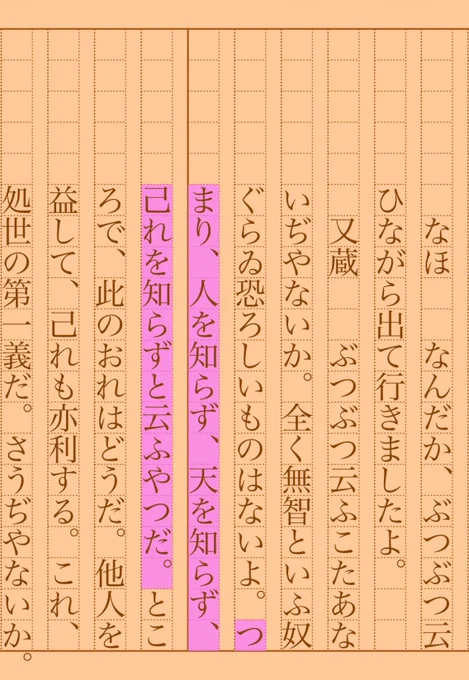 なほ　　なんだか、ぶつぶつ云
ひながら出て行きましたよ。
又蔵　　ぶつぶつ云ふこたあな
いぢやないか。全く無智といふ奴
ぐらゐ恐ろしいものはないよ。つ
まり、人を知らず、天を知らず、
己れを知らずと云ふやつだ。とこ
ろで、此のおれはどうだ。他人を
益して、己れも亦利する。これ、
処世の第一義だ。さうぢやないか。